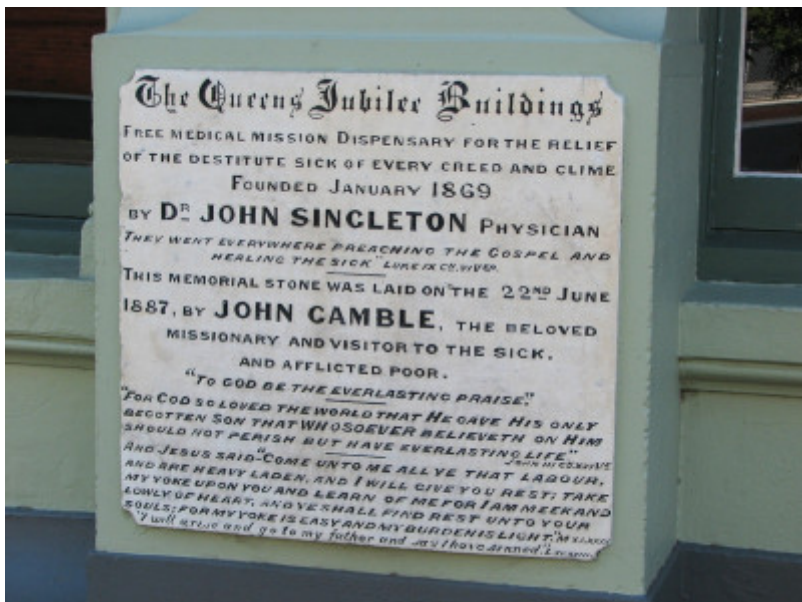 The Queens Jubilee Buildings
FREE MEDICAL MISSION DISPENSARY FOR THE RELIEF
OF THE DESTITUTE SICK OF EVERY CREED AND CLIME
FOUNDED JANUARY 1869
BY DR JOHN SINGLETON PHYSICIAN
THEY WENT EVERYWHERE PREACHING THE GOSPEL AND
HEALING THE SICK" LUKE IX CH. VI VER.
THIS MEMORIAL STONE WAS LAID ON THE 22ND JUNE
1887, BY JOHN GAMBLE, THE BELOVED
MISSIONARY AND VISITOR TO THE SICK,
AND AFFLICTED POOR.
"TO GOD BE THE EVERLASTING PRAISE."
"FOR GOD SO LOVED THE WORLD THAT HE GAVE HIS ONLY
BEGOTTEN SON THAT WHOSOEVER BELIEVETH ON HIM
SHOULD NOT PERISH BUT HAVE EVERLASTING LIFE"
JOHN III
AND JESUS SAID-"COME UNTO ME ALL YE THAT LABOUR,
AND ARE HEAVY LADEN, AND I WILL GIVE YOU REST; TAKE
MY YOKE UPON YOU AND LEARN OF ME FOR I AM MEEK AND
LOWLY OF HEART, AND YE SHALL FIND REST UNTO YOUR
SOULS; FOR MY YOKE IS EASY AND MY BURDEN IS LIGHT."
"I will arise and go to my father and say I have sinned."